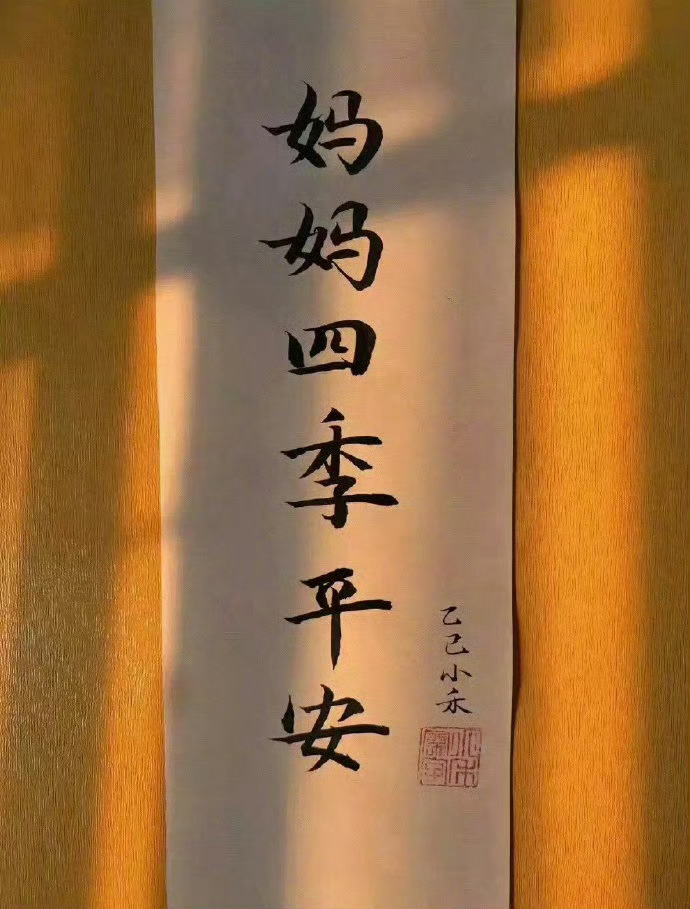 妈妈四季平安
乙巳小禾